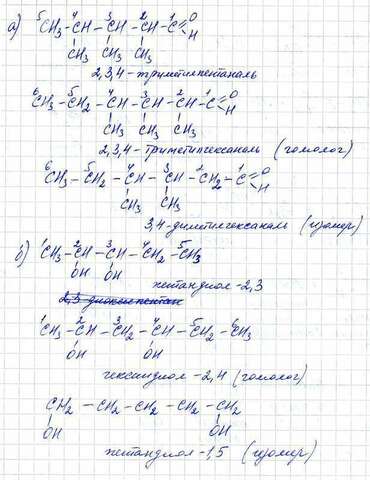 а) ⁵CH₃ – ⁴CH – ³CH – ²CH – ¹C = O
H
CH₃ CH₃ CH₃
2,3,4-триметилпентаналь
⁶CH₃ – ⁵CH₂ – ⁴CH – ³CH – ²CH – ¹C = O
H
CH₃ CH₃ CH₃
2,3,4-триметилгексаналь (гомолог)
⁶CH₃ – ⁵CH₂ – ⁴CH – ³CH – ²CH₂ – ¹C = O
H
CH₃ CH₃
3,4-диметилгексаналь (изомер)
б) ¹CH₃ – ²CH – ³CH – ⁴CH₂ – ⁵CH₃
OH OH
пентандиол-2,3
¹CH₃ – ²CH – ³CH₂ – ⁴CH – ⁵CH₂ – ⁶CH₃
OH OH
гександиол-2,4 (гомолог)
CH₂ – CH₂ – CH₂ – CH₂ – CH₂
OH OH
пентандиол-1,5 (изомер)